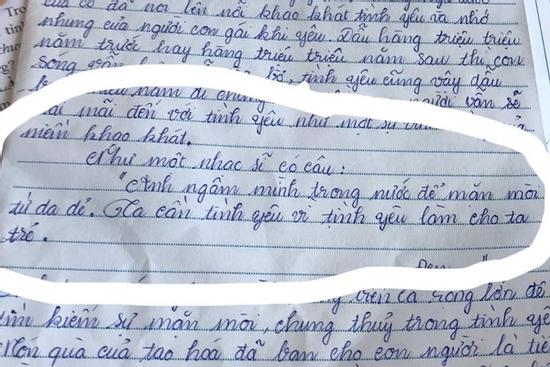 của cô đã nói lên nỗi khao khát tình yêu và nhớ
nhung của người con gái khi yêu. Dẫu hàng triệu triệu
năm trước hay hàng triệu triệu năm sau thì con
sóng vẫn tình yêu cũng vậy dẫu
năm đi chăng người vẫn sẽ
mãi mãi đến với tình yêu như một sự
niềm khao khát.
Như một nhạc sĩ có câu:
"Anh ngâm mình trong nước để mặn mòi
từ da dẻ. Ta cần tình yêu vì tình yêu làm cho ta
trẻ.
trên cả sóng lớn để
tìm kiếm sự mặn mòi, chung thuỷ trong tình yê
Món quà của tạo hoá đã ban cho con người là tiê